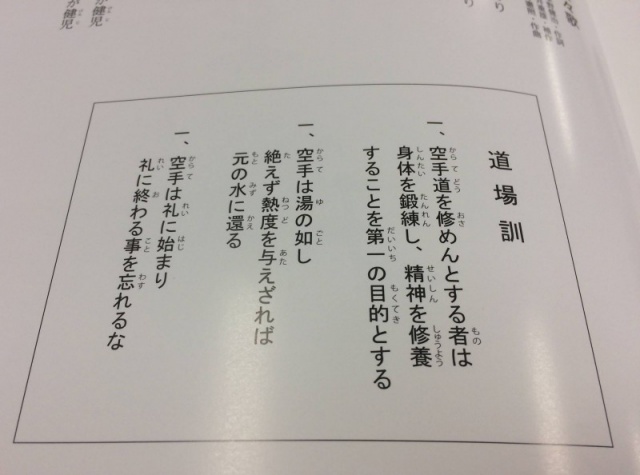 道場訓
一、空手道を修めんとする者は
身体を鍛練し、精神を修養
することを第一の目的とする
一、空手は湯の如し
絶えず熱度を与えざれば
元の水に還る
一、空手は礼に始まり
礼に終わる事を忘れるな
が健児
が健児